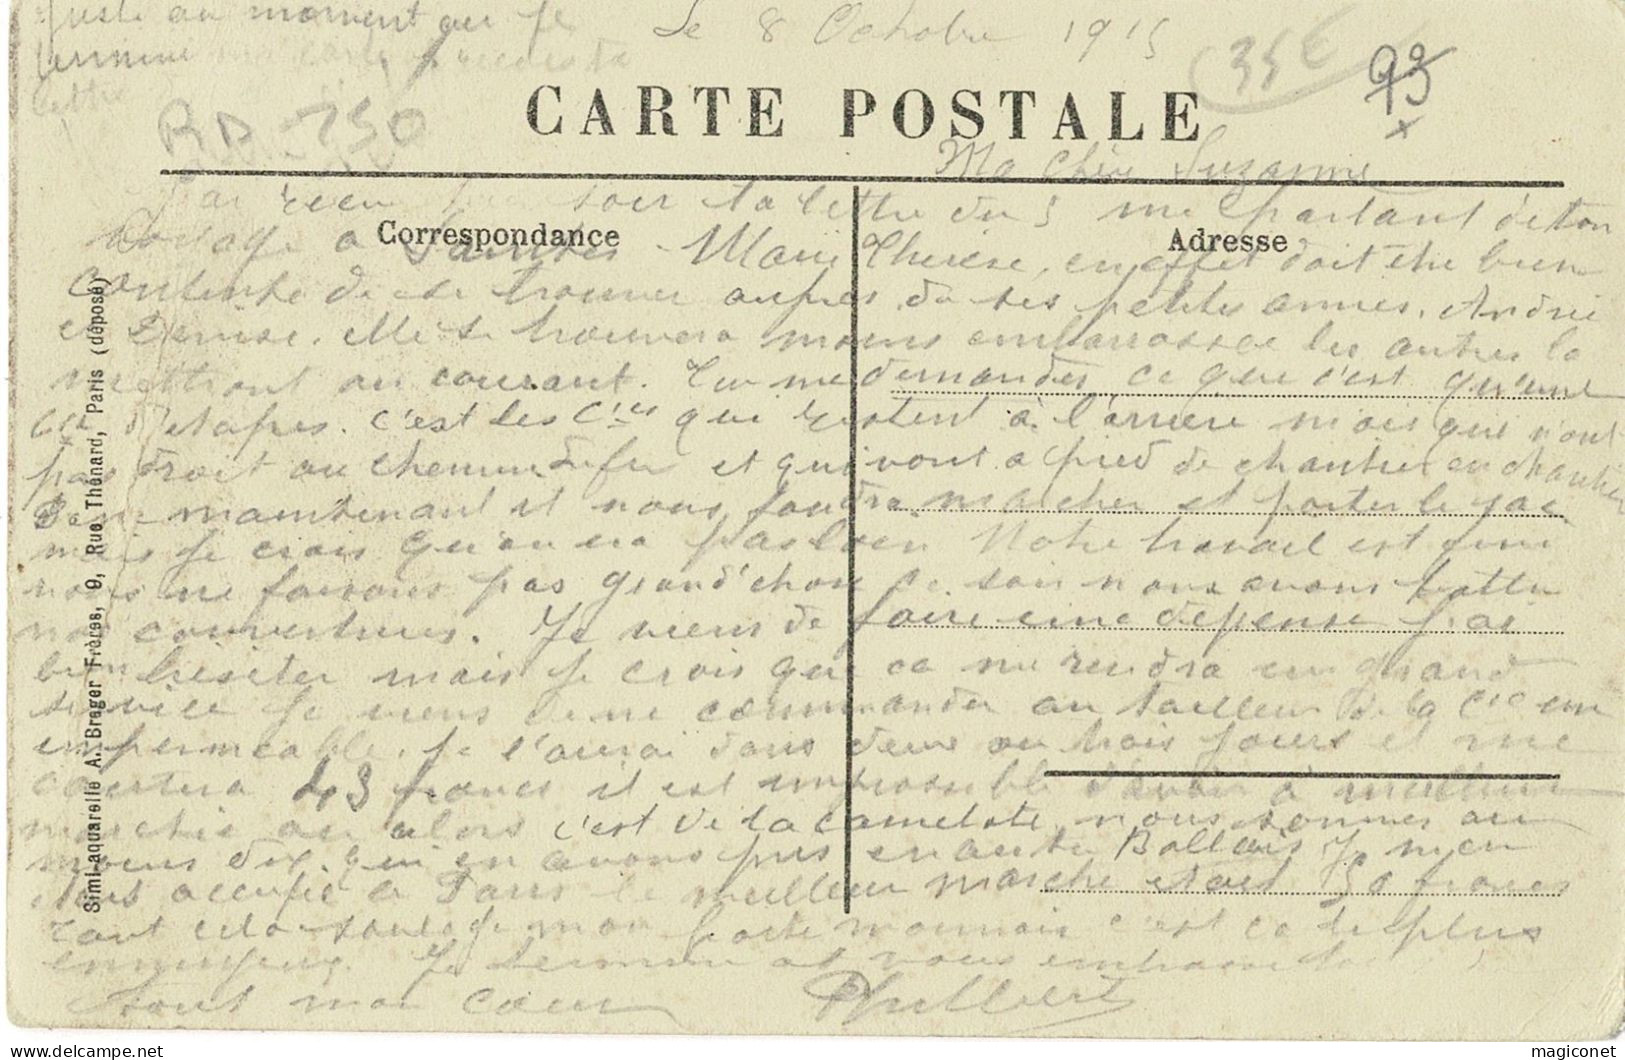 juste au moment ou je
termine ma carte je recois ta
lettre
Le 8 Octobre 1915
35€
93
RD 750
CARTE POSTALE
Ma chère Suzanne
J'ai recu hier soir ta lettre du 5 me parlant de ton
Correspondance
Adresse
voyage a Saintes. Marie Therese, en effet doit etre bien
contente de se trouver aupres de ses petites amies. Andrée
et Denise. elle se trouvera moins embarrassee les autres la
mettront au courant. Tu me demandes ce que c'est qu'une
Cie d'etapes. c'est les Cies qui restent à l'arriere mais qui n'ont
pas droit au chemin de fer et qui vont a pied de chantier en chantier
maintenant il nous faudra marcher et porter le sac
mais je crois qu'on ira pas loin Notre travail est fini
nous ne faisons pas grand'chose ce soir nous avons battu
nos couvertures. Je viens de faire une depense pas
bien hesiter mais je crois que ca me rendra un grand
service je viens de me commander au tailleur de la Cie un
impermeable. je l'aurai dans deux ou trois jours et me
coutera 43 francs il est impossible d'avoir à meilleur
marche ou alors c'est de la camelote, nous sommes au
moins dix qui en avons pris
occupé a Paris le meilleur marche etait 50 francs
tout cela soulage mon porte monnaie c'est ca le plus
ennuyeux. Je termine et vous embrasse
tout mon cœur Philbert
Simi-aquarelle A. Breger Frères, 9, Rue Thénard, Paris (déposé)
magiconet